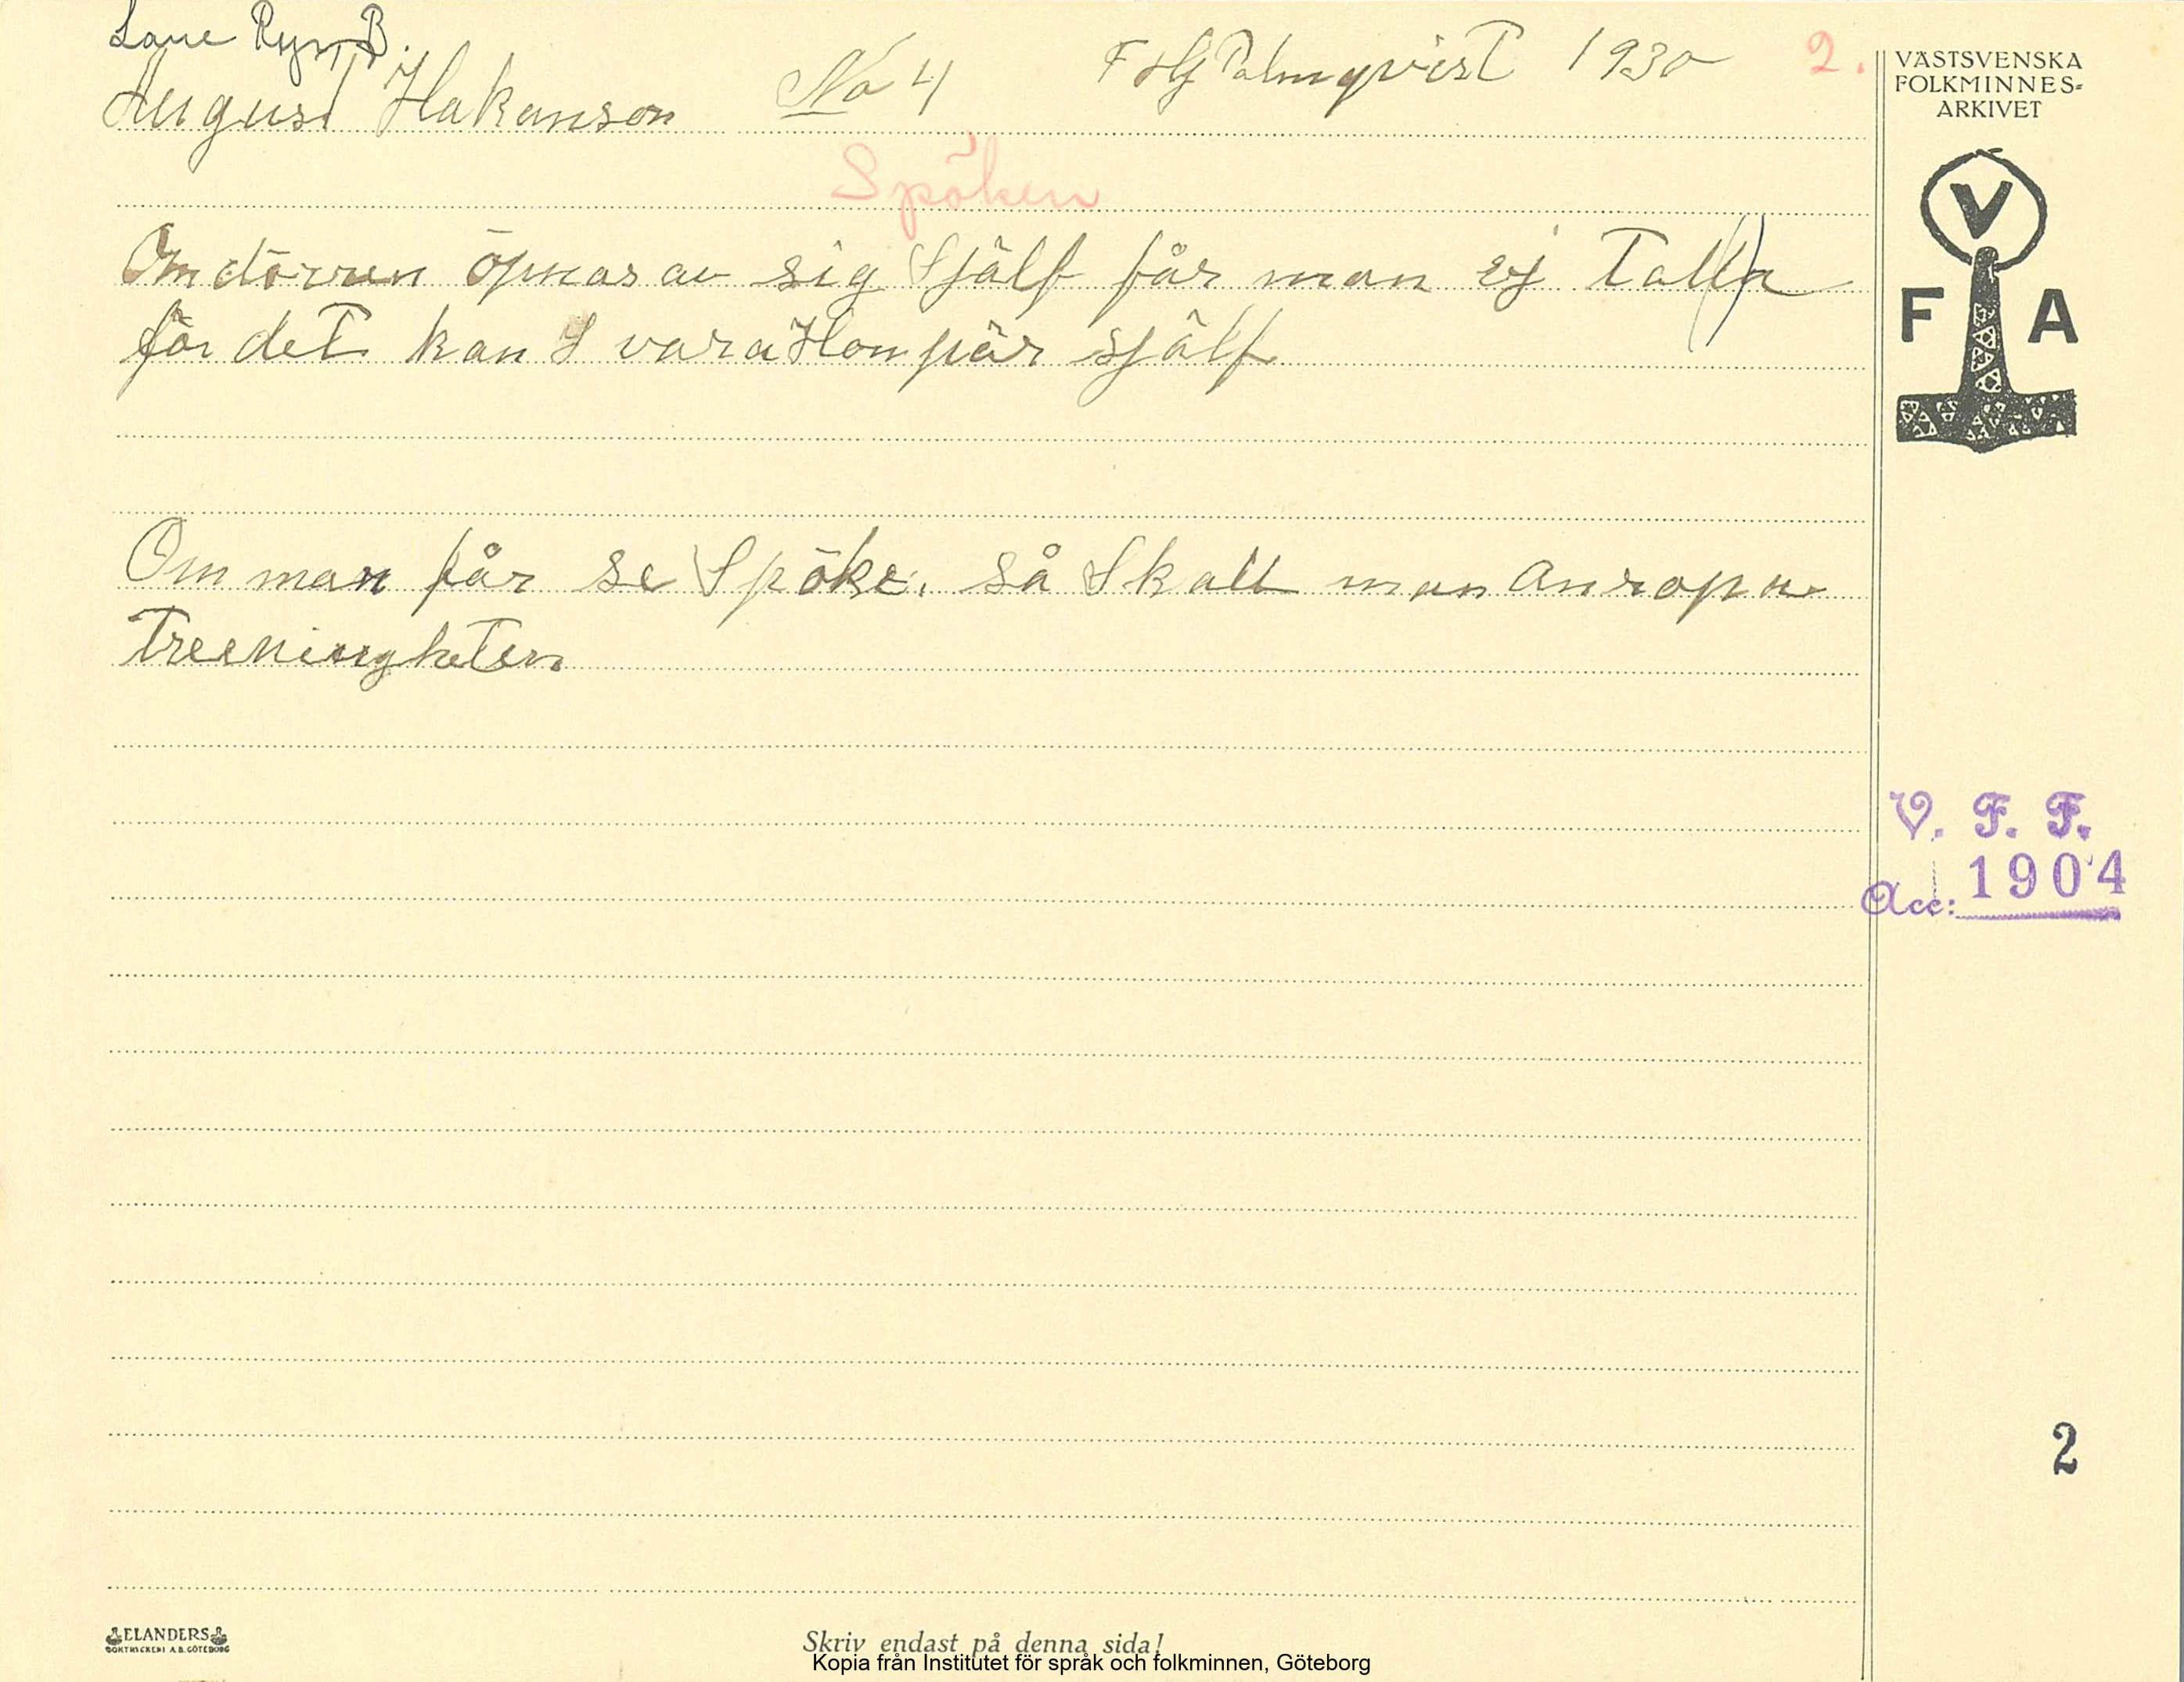 Lane Ryr B.
August Hakanson No 4 F Hj Palmqvist 1930 2.
VÄSTSVENSKA
FOLKMINNES-
ARKIVET
V
F A
Spöken
Om dörren öpnas av sig Själf får man ej Talla
för det kan vara Hompär själf
Om man får se Spöke. så Skall man Anropa
Treeningheten
V. F. F.
Acc: 1904
2
ELANDERS
BOKTRYCKERI A.B. GÖTEBORG
Skriv endast på denna sida!
Kopia från Institutet för språk och folkminnen, Göteborg